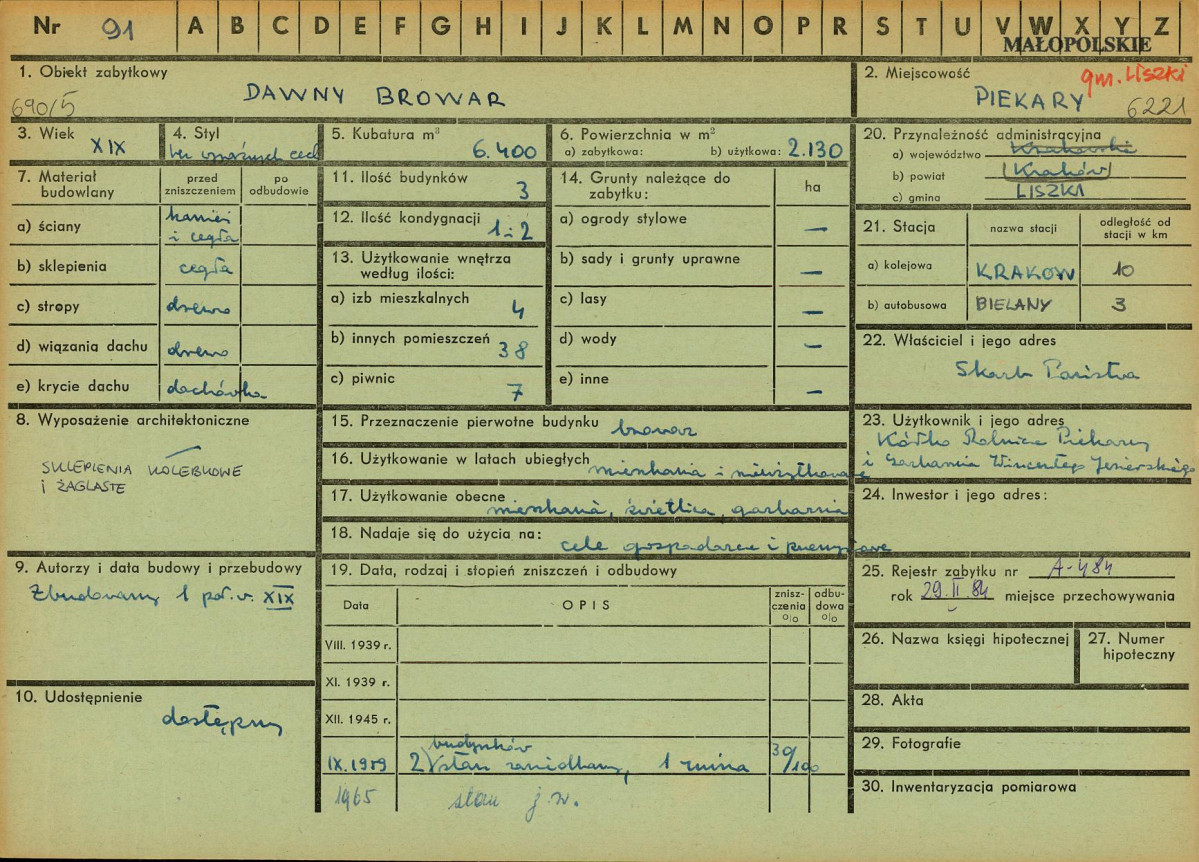 Nr 91 A B C D E F G H I J K L M N O P R S T U V W X Y Z
MAŁOPOLSKIE
1. Obiekt zabytkowy
690/5
DAWNY BROWAR
2. Miejscowość
gm. LISZKI
PIEKARY 6221
3. Wiek
XIX
4. Styl
bez wyraźnych cech
5. Kubatura m³
6.400
6. Powierzchnia w m²
a) zabytkowa: b) użytkowa: 2.130
7. Materiał budowlany
przed zniszczeniem
po odbudowie
a) ściany kamień i cegła
b) sklepienia cegła
c) stropy drewno
d) wiązania dachu drewno
e) krycie dachu dachówka
8. Wyposażenie architektoniczne
SKLEPIENIA KOLEBKOWE
I ŻAGLASTE
9. Autorzy i data budowy i przebudowy
Zbudowany 1 poł. w. XIX
10. Udostępnienie
dostępny
11. Ilość budynków
3
12. Ilość kondygnacji
1-2
13. Użytkowanie wnętrza
według ilości:
a) izb mieszkalnych 4
b) innych pomieszczeń 38
c) piwnic 7
14. Grunty należące do
zabytku:
ha
a) ogrody stylowe —
b) sady i grunty uprawne —
c) lasy —
d) wody —
e) inne —
15. Przeznaczenie pierwotne budynku browar
16. Użytkowanie w latach ubiegłych mieszkania i nieużytkowane
17. Użytkowanie obecne mieszkania, świetlica, garbarnia
18. Nadaje się do użycia na: cele gospodarcze i przemysłowe
19. Data, rodzaj i stopień zniszczeń i odbudowy
Data OPIS znisz-
czenia
o/o odbu-
dowa
o/o
VIII. 1939 r.
XI. 1939 r.
XII. 1945 r.
budynków
IX.1959 2 stan zaniedbany, 1 ruina 30/100
1965 stan j.w.
20. Przynależność administracyjna
a) województwo Krakowskie
b) powiat Kraków
c) gmina LISZKI
21. Stacja
nazwa stacji
odległość od
stacji w km
a) kolejowa KRAKÓW 10
b) autobusowa BIELANY 3
22. Właściciel i jego adres
Skarb Państwa
23. Użytkownik i jego adres
Kółko Rolnicze Piekary
i Garbarnia Wincentego Jezierskiego
24. Inwestor i jego adres:
25. Rejestr zabytku nr A-484
rok 29.II.84 miejsce przechowywania
26. Nazwa księgi hipotecznej
27. Numer
hipoteczny
28. Akta
29. Fotografie
30. Inwentaryzacja pomiarowa